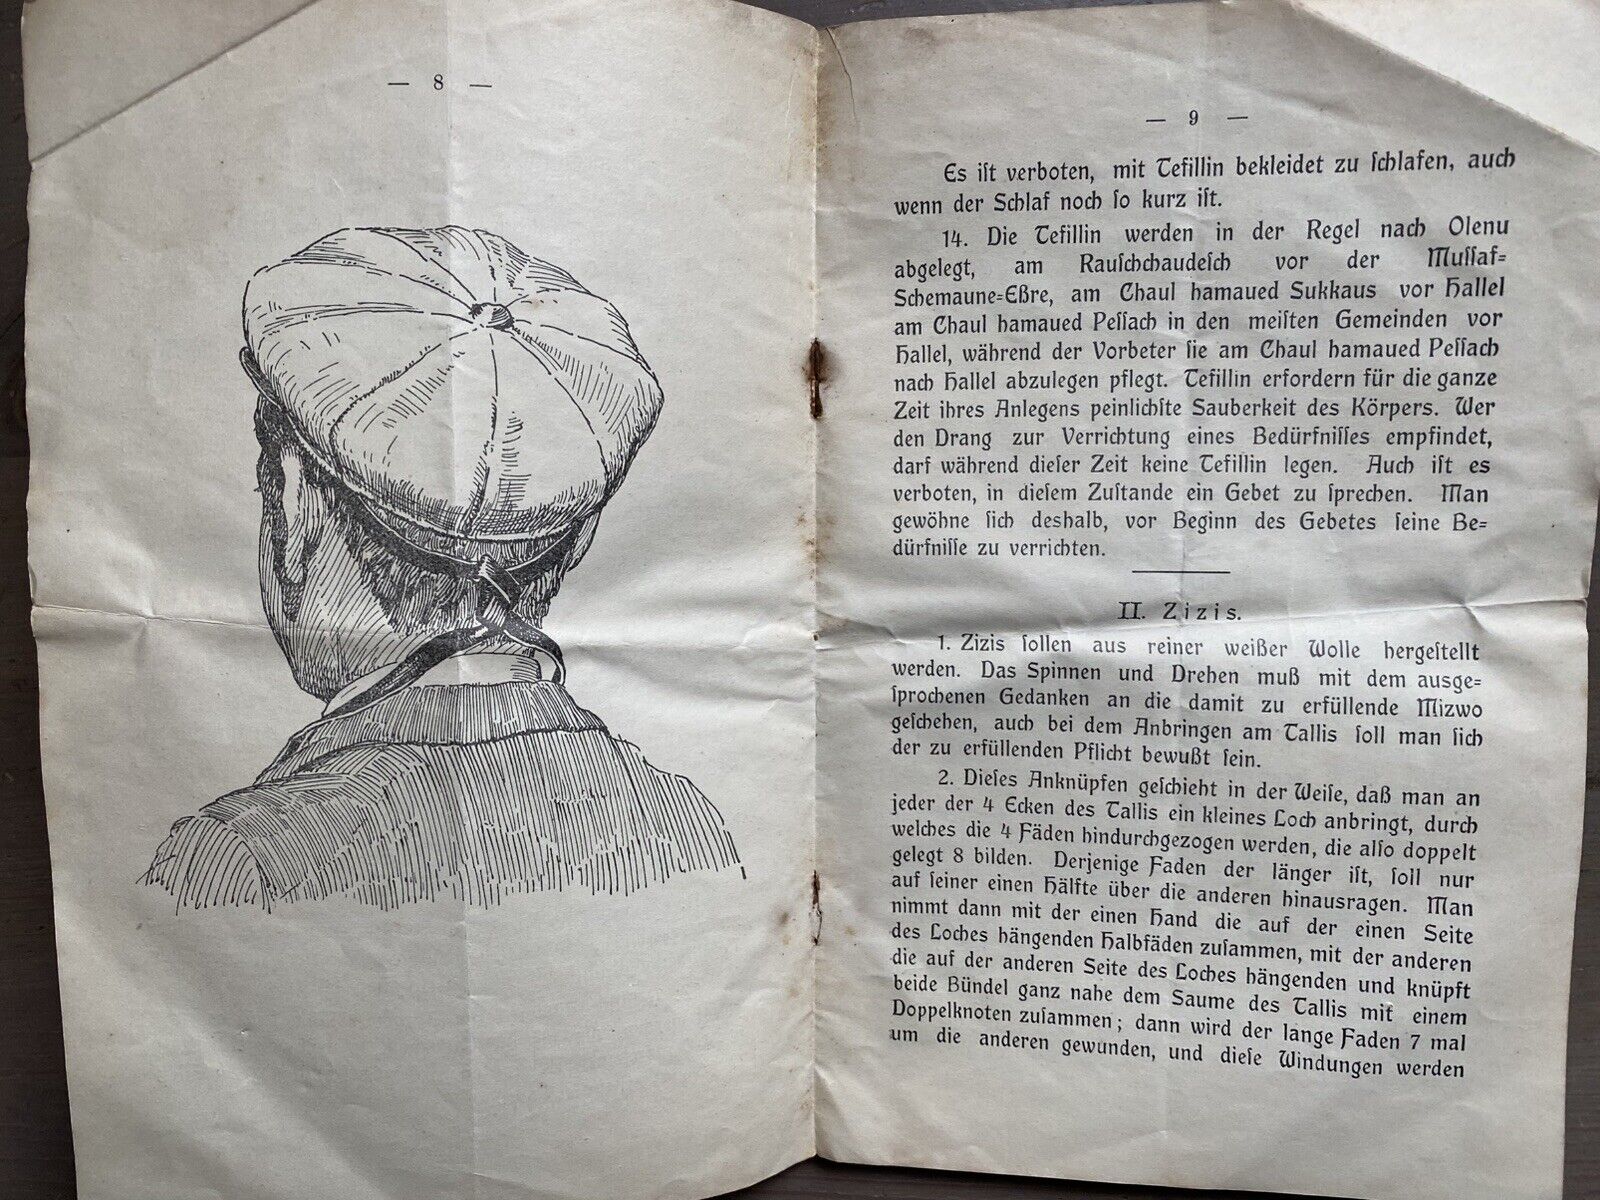 — 8 —
— 9 —
Es iſt verboten, mit Tefillin bekleidet zu ſchlafen, auch
wenn der Schlaf noch ſo kurz iſt.
14. Die Tefillin werden in der Regel nach Olenu
abgelegt, am Rauſchchaudeſch vor der Muſſaf=
Schemaune=Eßre, am Chaul hamaued Sukkaus vor Hallel
am Chaul hamaued Peſſach in den meiſten Gemeinden vor
Hallel, während der Vorbeter ſie am Chaul hamaued Peſſach
nach Hallel abzulegen pflegt. Tefillin erfordern für die ganze
Zeit ihres Anlegens peinlichſte Sauberkeit des Körpers. Wer
den Drang zur Verrichtung eines Bedürfniſſes empfindet,
darf während dieſer Zeit keine Tefillin legen. Auch iſt es
verboten, in dieſem Zuſtande ein Gebet zu ſprechen. Man
gewöhne ſich deshalb, vor Beginn des Gebetes ſeine Be=
dürfniſſe zu verrichten.
II. Zizis.
1. Zizis ſollen aus reiner weißer Wolle hergeſtellt
werden. Das Spinnen und Drehen muß mit dem ausge=
ſprochenen Gedanken an die damit zu erfüllende Mizwo
geſchehen, auch bei dem Anbringen am Tallis ſoll man ſich
der zu erfüllenden Pflicht bewußt ſein.
2. Dieſes Anknüpfen geſchieht in der Weiſe, daß man an
jeder der 4 Ecken des Tallis ein kleines Loch anbringt, durch
welches die 4 Fäden hindurchgezogen werden, die alſo doppelt
gelegt 8 bilden. Derjenige Faden der länger iſt, ſoll nur
auf ſeiner einen Hälfte über die anderen hinausragen. Man
nimmt dann mit der einen Hand die auf der einen Seite
des Loches hängenden Halbfäden zuſammen, mit der anderen
die auf der anderen Seite des Loches hängenden und knüpft
beide Bündel ganz nahe dem Saume des Tallis mit einem
Doppelknoten zuſammen; dann wird der lange Faden 7 mal
um die anderen gewunden, und dieſe Windungen werden